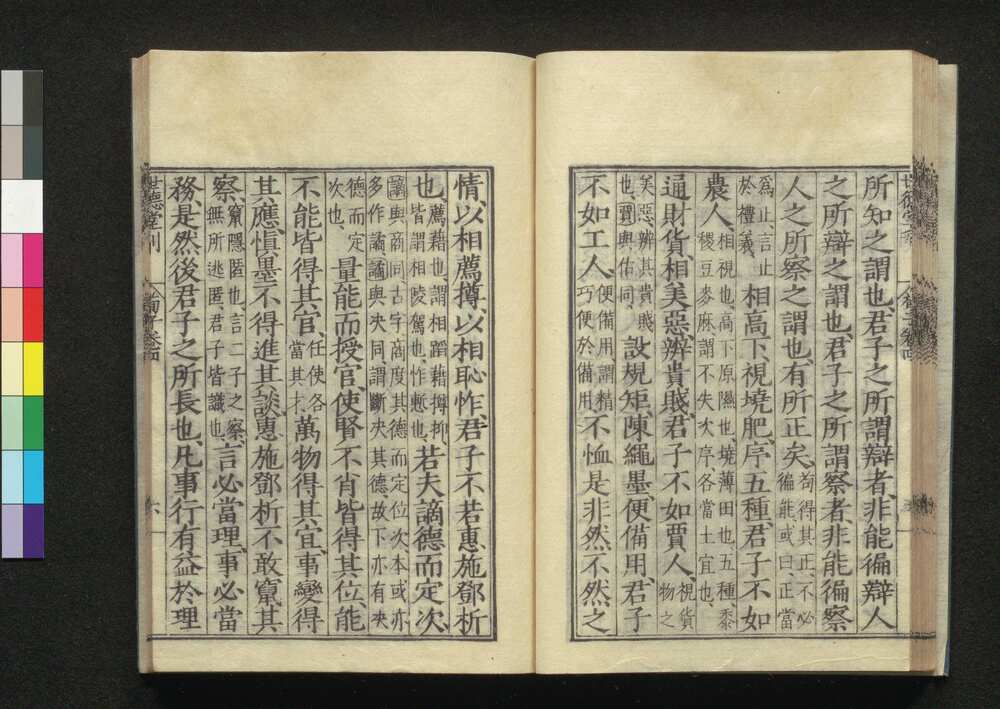 所知之謂也、君子之所謂辯者、非能徧辯人
之所辯之謂也、君子之所謂察者、非能徧察
人之所察之謂也、有所正矣、苟得其正、不必徧能或曰、正當
爲止、言止於禮義、相高下、視墝肥、序五種、君子不如
農人、相視也、高下原隰也、墝薄田也、五種黍稷豆麥麻、謂不失次序、各當土宜也、
通財貨、相美惡、辨貴賤、君子不如賈人、視貨物之
美惡、辨其貴賤也、賈與估同、設規矩、陳繩墨、便備用、君子
不如工人、便備用、謂精巧便於備用、不恤是非然不然之
情、以相薦撙、以相恥怍、君子不若惠施鄧析
也、薦藉也、謂相蹈藉、撙抑、皆謂相陵駕也、怍慙也、若夫謫德而定次、
謫與商同、古字、商度其德而定位次、本或亦多作譎、譎與決同、謂斷決其德、故下亦有決
德而定次也、量能而授官、使賢不肖皆得其位、能
不能皆得其官、任使各當其才、萬物得其宜、事變得
其應、愼墨不得進其談、惠施鄧析不敢竄其
察、竄隱匿也、言二子之察、無所逃匿、君子皆識也、言必當理、事必當
務、是然後君子之所長也、凡事行有益於理
世德堂刊
荀子卷四
六